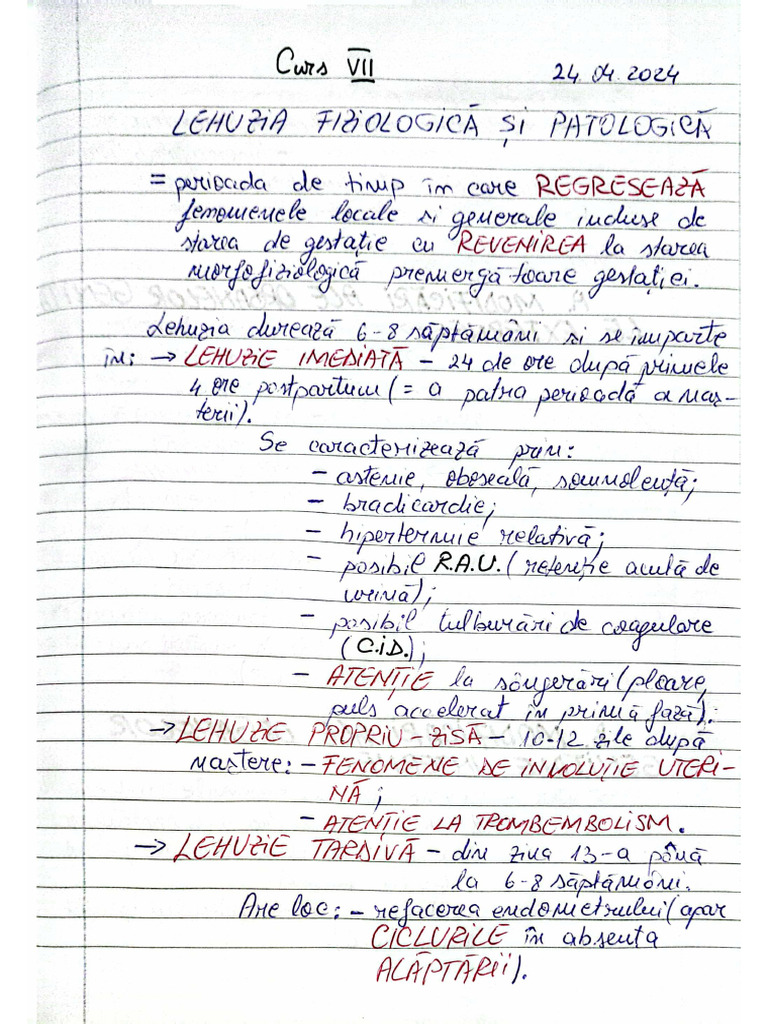 Curs VII 24.04.2024
LEHUZIA FIZIOLOGICĂ ȘI PATOLOGICĂ
= perioada de timp în care REGRESEAZĂ
fenomenele locale si generale induse de
starea de gestație cu REVENIREA la starea
morfofiziologică premergătoare gestației.
Lehuzia durează 6-8 săptămâni si se imparte
în: → LEHUZIE IMEDIATĂ - 24 de ore după primele
4 ore postpartum (= a patra perioadă a naș-
terii).
Se caracterizează prin:
- astenie, oboseală, somnolență;
- bradicardie;
- hipertermie relativă;
- posibil R.A.U. (retenție acută de
urină);
- posibil tulburări de coagulare
(C.i.D.);
- ATENȚIE la sângerări (ploare,
puls accelerat în primă fază);
→ LEHUZIE PROPRIU-ZISĂ - 10-12 zile după
naștere: - FENOMENE DE INVOLUȚIE UTERI-
NĂ;
- ATENȚIE LA TROMBEMBOLISM.
→ LEHUZIE TARDIVĂ - din ziua 13-a până
la 6-8 săptămâni.
Are loc: - refacerea endometrului (apar
CICLURILE în absența
ALĂPTĂRII).